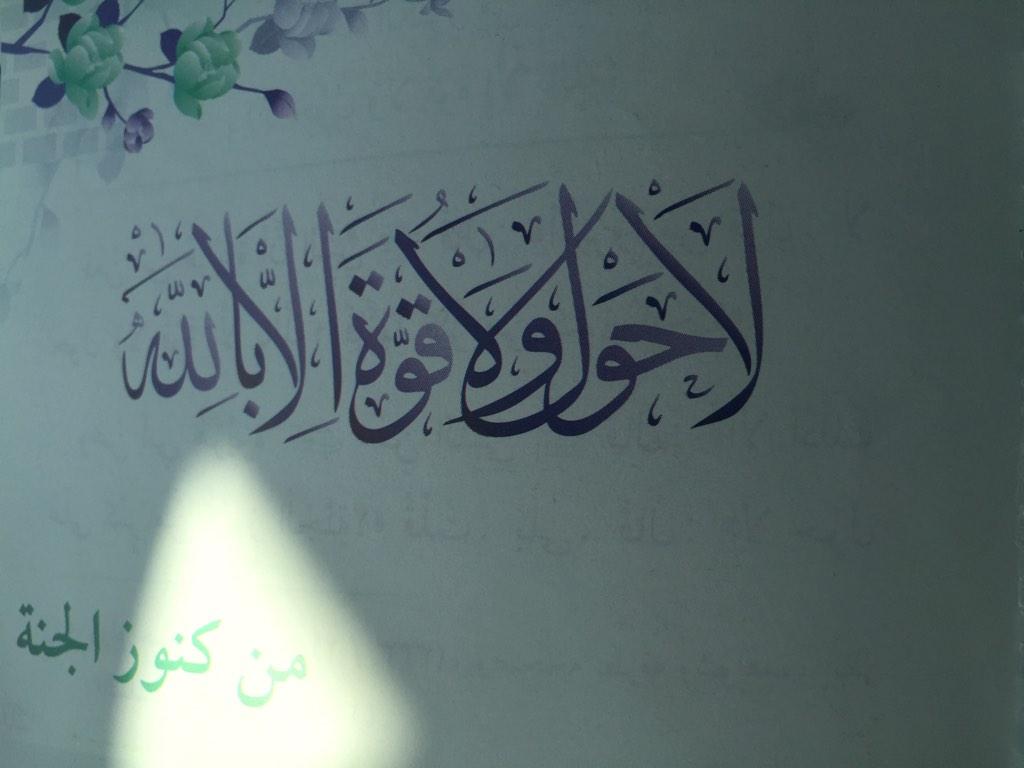 لَا حَوْلَ وَلَا قُوَّةَ إِلَّا بِاللَّهِ
من كنوز الجنة